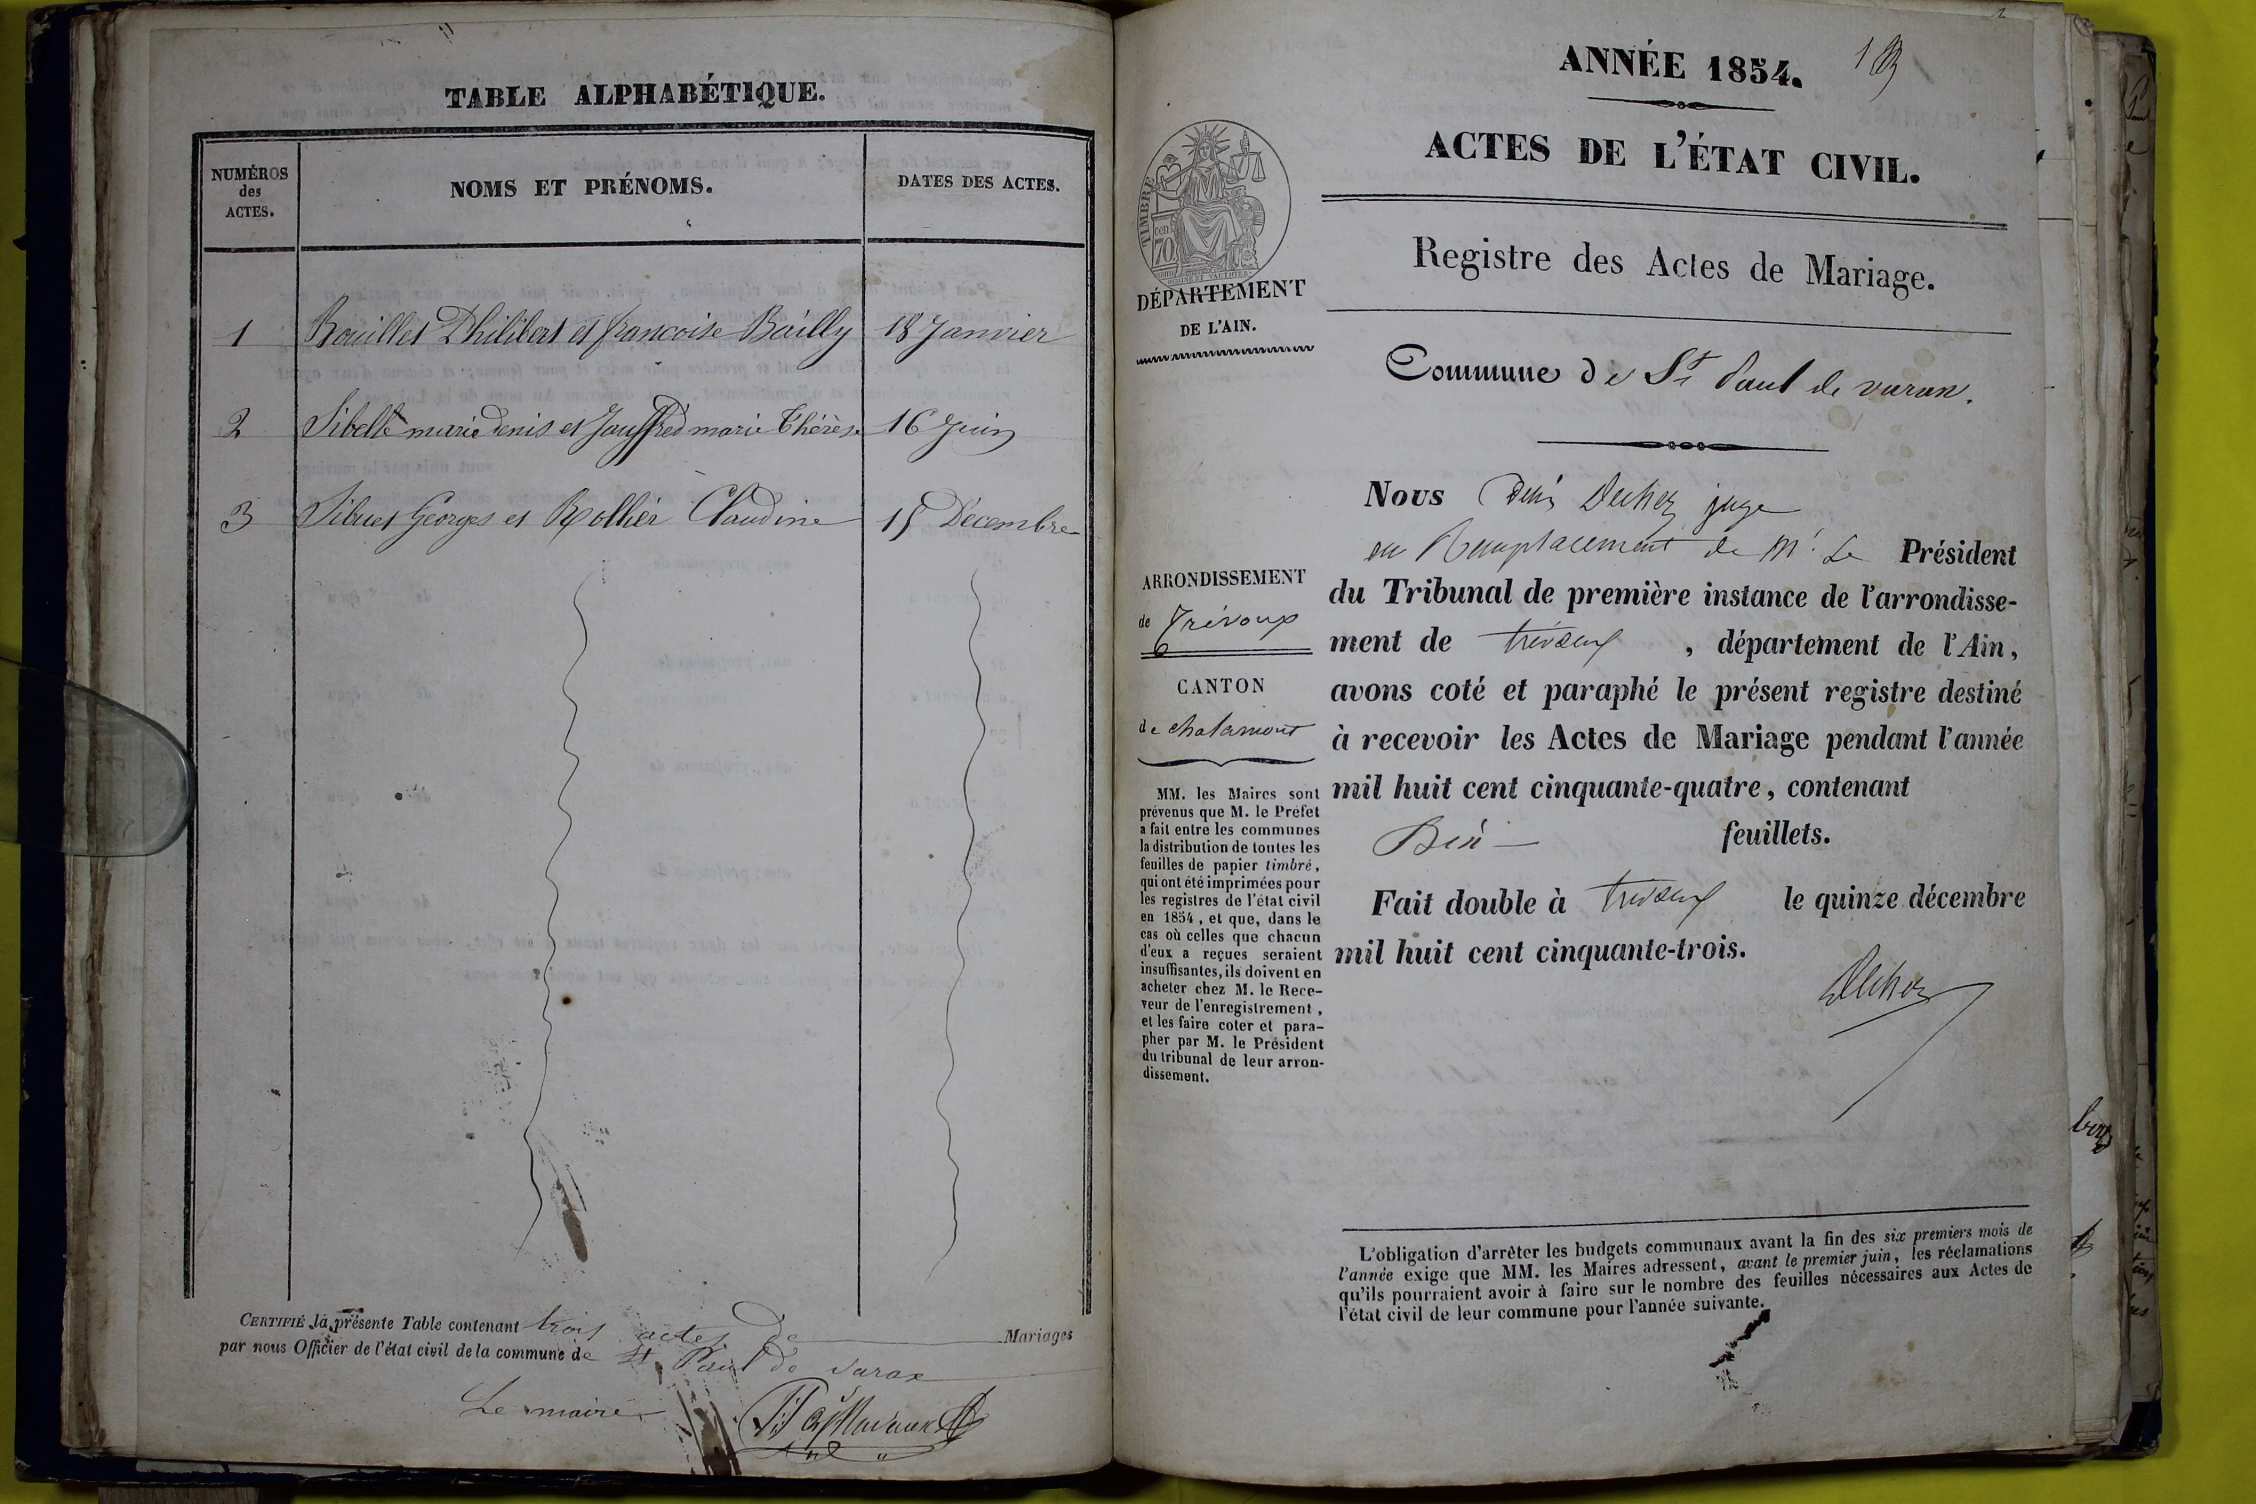 TABLE ALPHABÉTIQUE.
NUMÉROS
des
ACTES.
NOMS ET PRÉNOMS.
DATES DES ACTES.
1 Bouillet Philibert et françoise Bailly 18 Janvier
2 Sibelle marie denis et Jauffred marie Thérèse 16 Juin
3 Sibuet Georges et Rollier Claudine 15 Décembre
CERTIFIÉ la présente Table contenant trois actes De Mariages
par nous Officier de l'état civil de la commune de St Paul de varax
Le maire
ANNÉE 1854.
ACTES DE L'ÉTAT CIVIL.
TIMBRE
cen
70
DÉPARTEMENT
DE L'AIN.
Registre des Actes de Mariage.
Commune de St Paul de varax.
ARRONDISSEMENT
de Trévoux
CANTON
de chalamont
MM. les Maires sont
prévenus que M. le Préfet
a fait entre les communes
la distribution de toutes les
feuilles de papier timbré,
qui ont été imprimées pour
les registres de l'état civil
en 1854, et que, dans le
cas où celles que chacun
d'eux a reçues seraient
insuffisantes, ils doivent en
acheter chez M. le Rece-
veur de l'enregistrement,
et les faire coter et para-
pher par M. le Président
du tribunal de leur arron-
dissement.
Nous juge
en Remplacement de Mr. Le Président
du Tribunal de première instance de l'arrondisse-
ment de trévoux, département de l'Ain,
avons coté et paraphé le présent registre destiné
à recevoir les Actes de Mariage pendant l'année
mil huit cent cinquante-quatre, contenant
feuillets.
Fait double à trévoux le quinze décembre
mil huit cent cinquante-trois.
L'obligation d'arrêter les budgets communaux avant la fin des six premiers mois de
l'année exige que MM. les Maires adressent, avant le premier juin, les réclamations
qu'ils pourraient avoir à faire sur le nombre des feuilles nécessaires aux Actes de
l'état civil de leur commune pour l'année suivante.